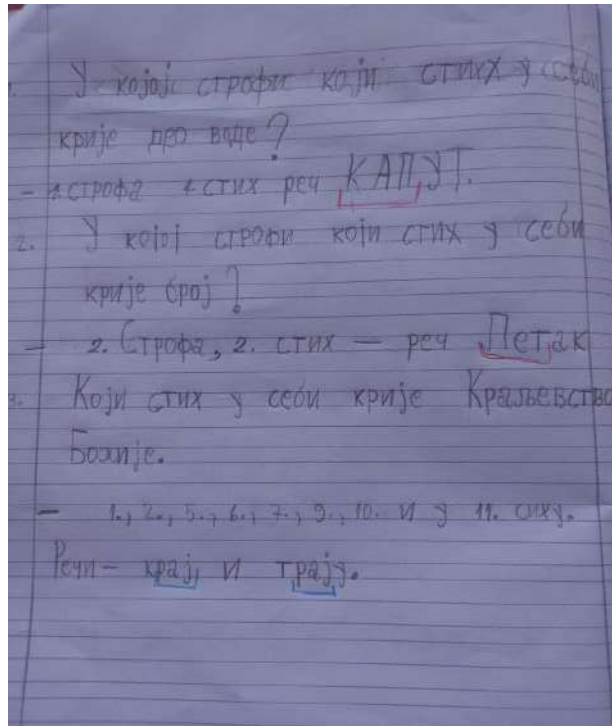 1. У којој строфи који стих у себи
крије део воде?
- 1. строфа 1. стих реч КАПУТ.
2. У којој строфи који стих у себи
крије број?
- 2. Строфа, 2. стих - реч Петак
3. Који стих у себи крије Краљевство
Божије.
- 1., 2., 5., 6., 7., 9., 10. и у 11. сиху.
Речи - крај, и трају.